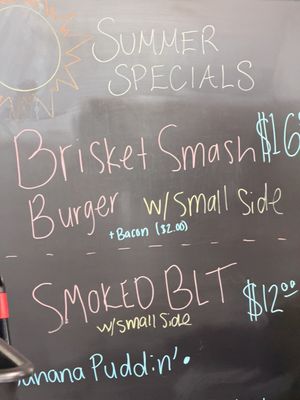 SUMMER
SPECIALS
Brisket Smash $16
Burger w/Small Side
+Bacon ($2.00)
SMOKED BLT $12.00
w/small side
Puddin'.